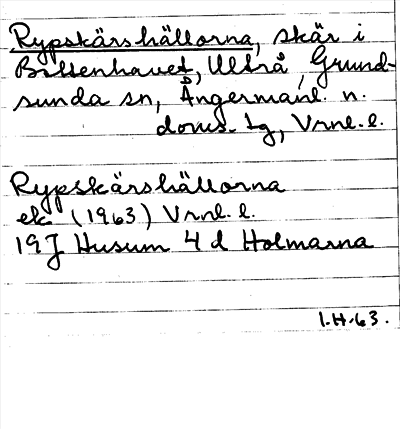 Rypskärshällorna, skär i
Bottenhavet, Ultrå, Grund-
sunda sn, Ångermanl. n.
doms. tg, Vrnl. l.
Rypskärshällorna
ek (1963) Vrnl. l.
19J Husum 4 d Holmarna
I.H.63.